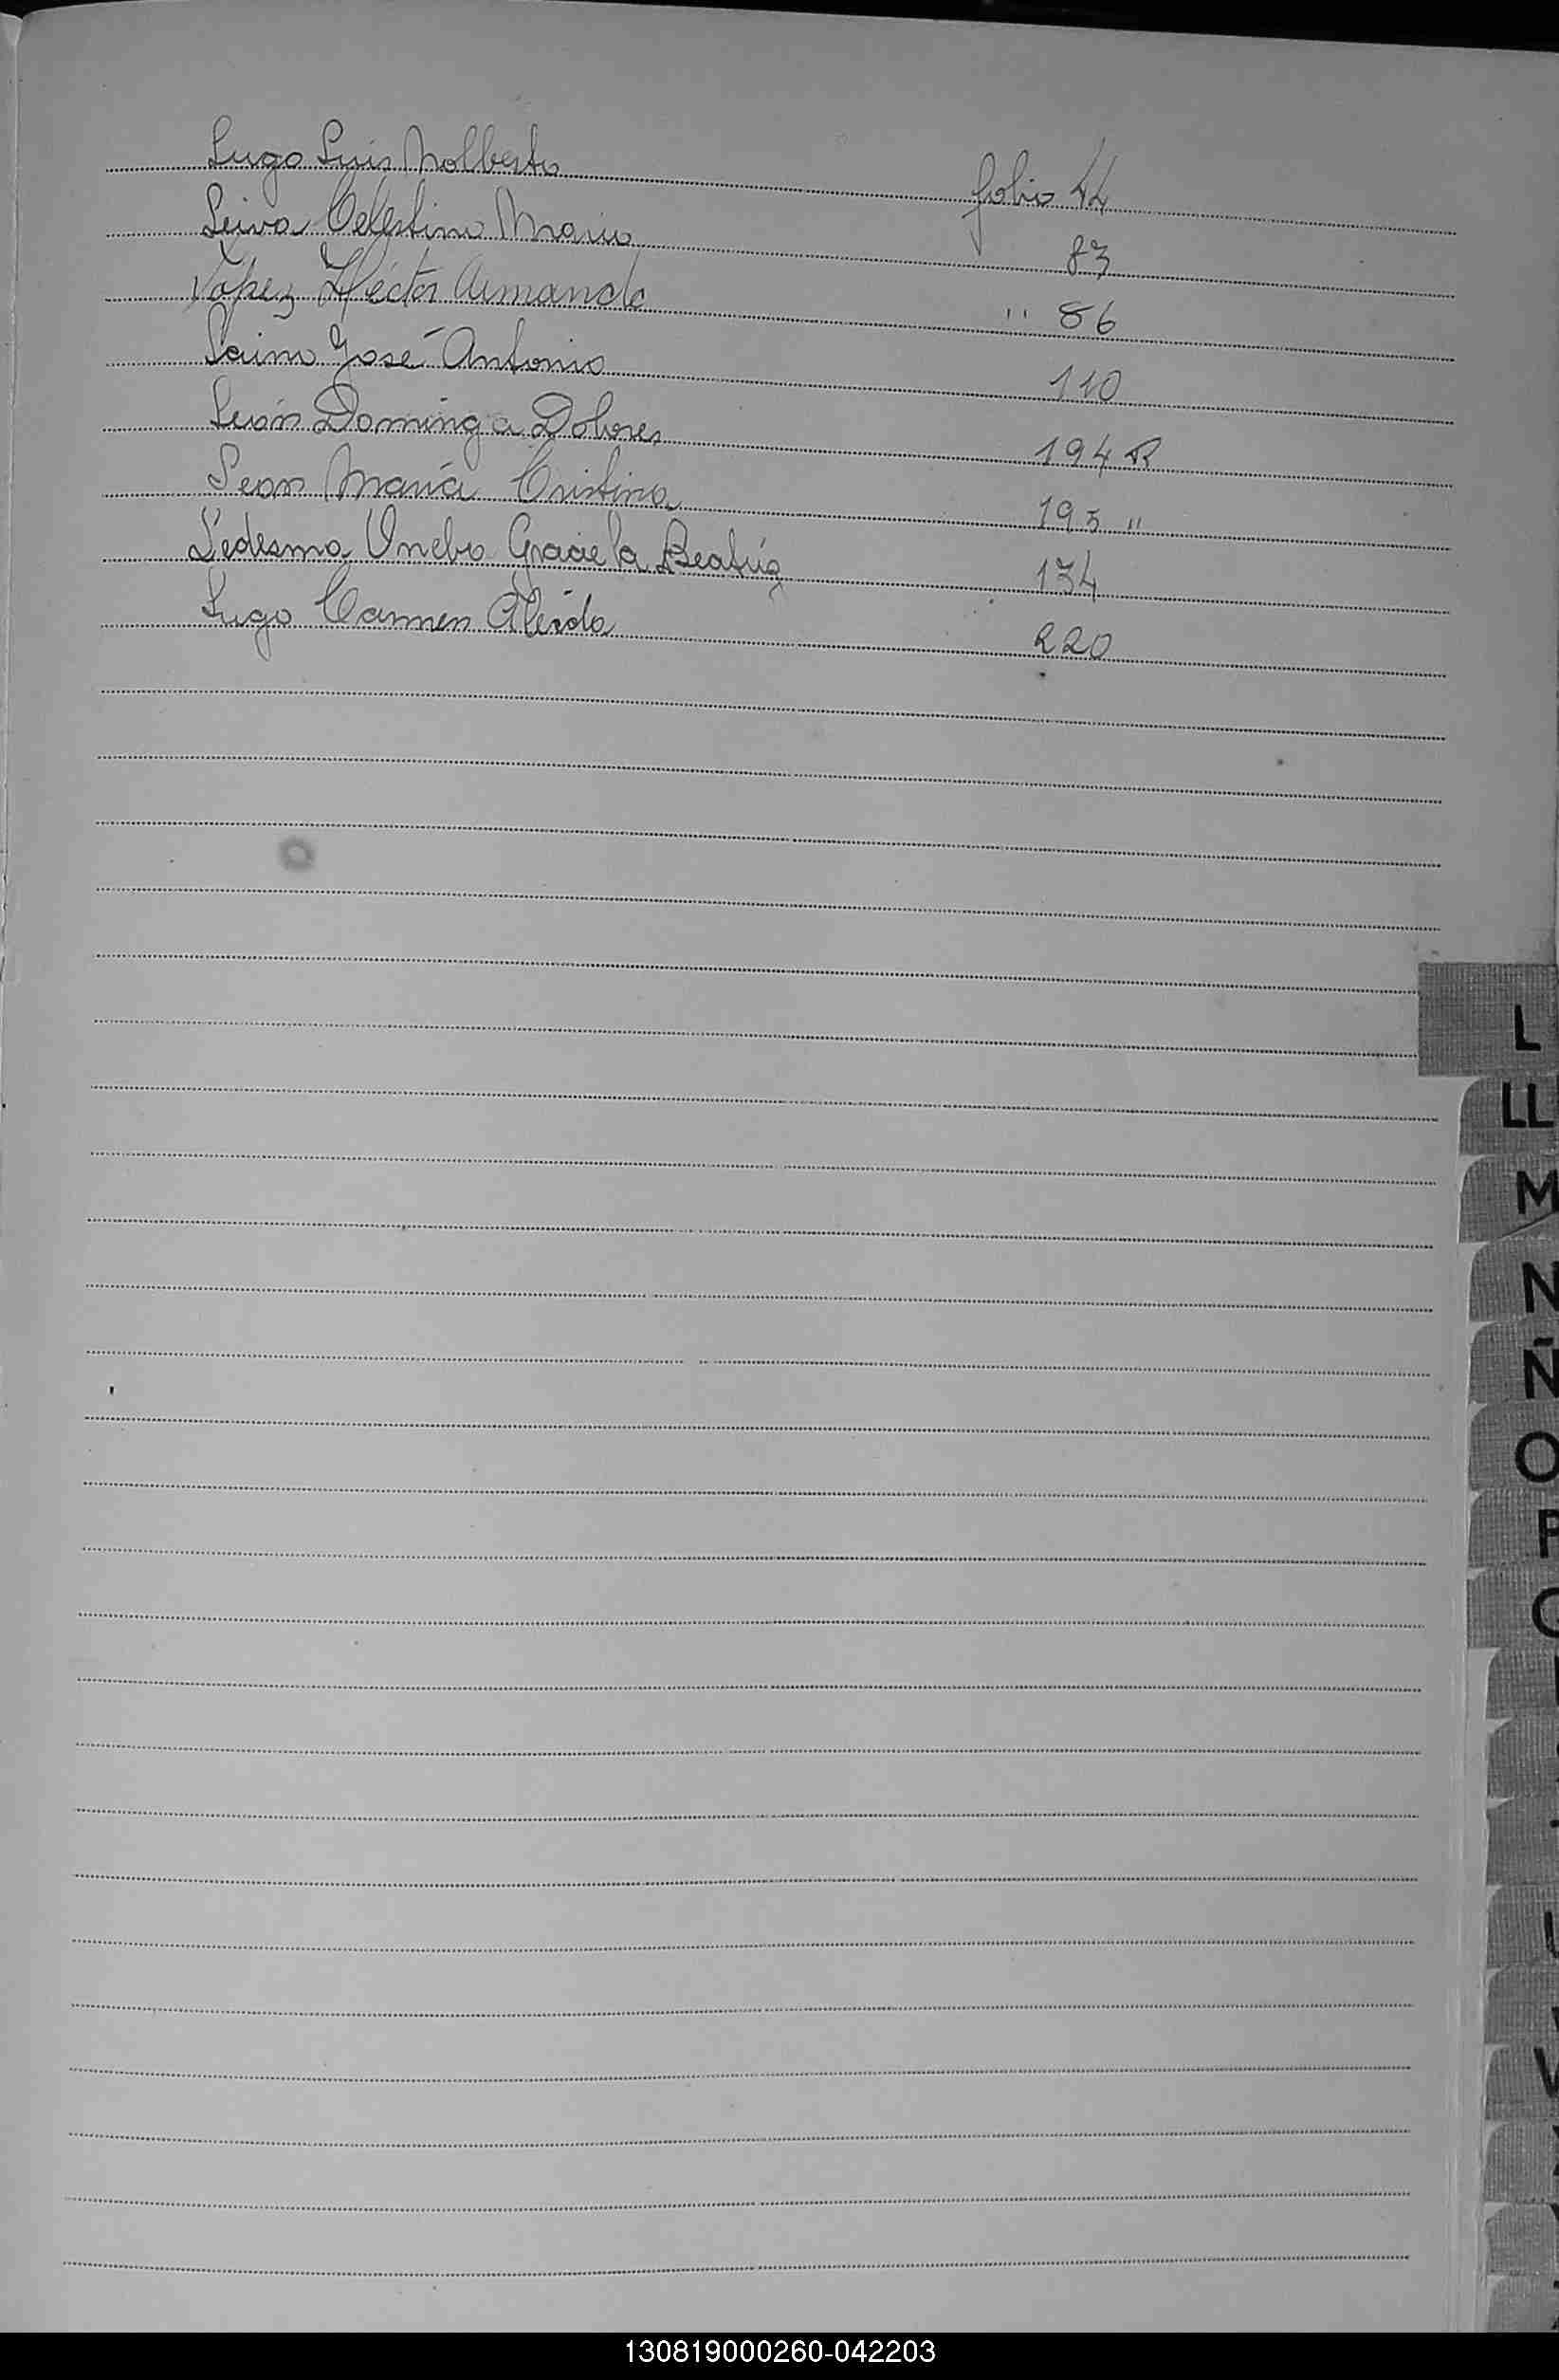 Lugo Luis Nolberto folio 44
Leiva Celestino Mario 83
López Héctor Armando " 86
José Antonio 110
León Dominga Dolores 194 R
Leon María Cristina 195 "
Ledesma Graciela Beatríz 134
Lugo Carmen Aleida 220
L
LL
M
N
Ñ
O
P
130819000260-042203